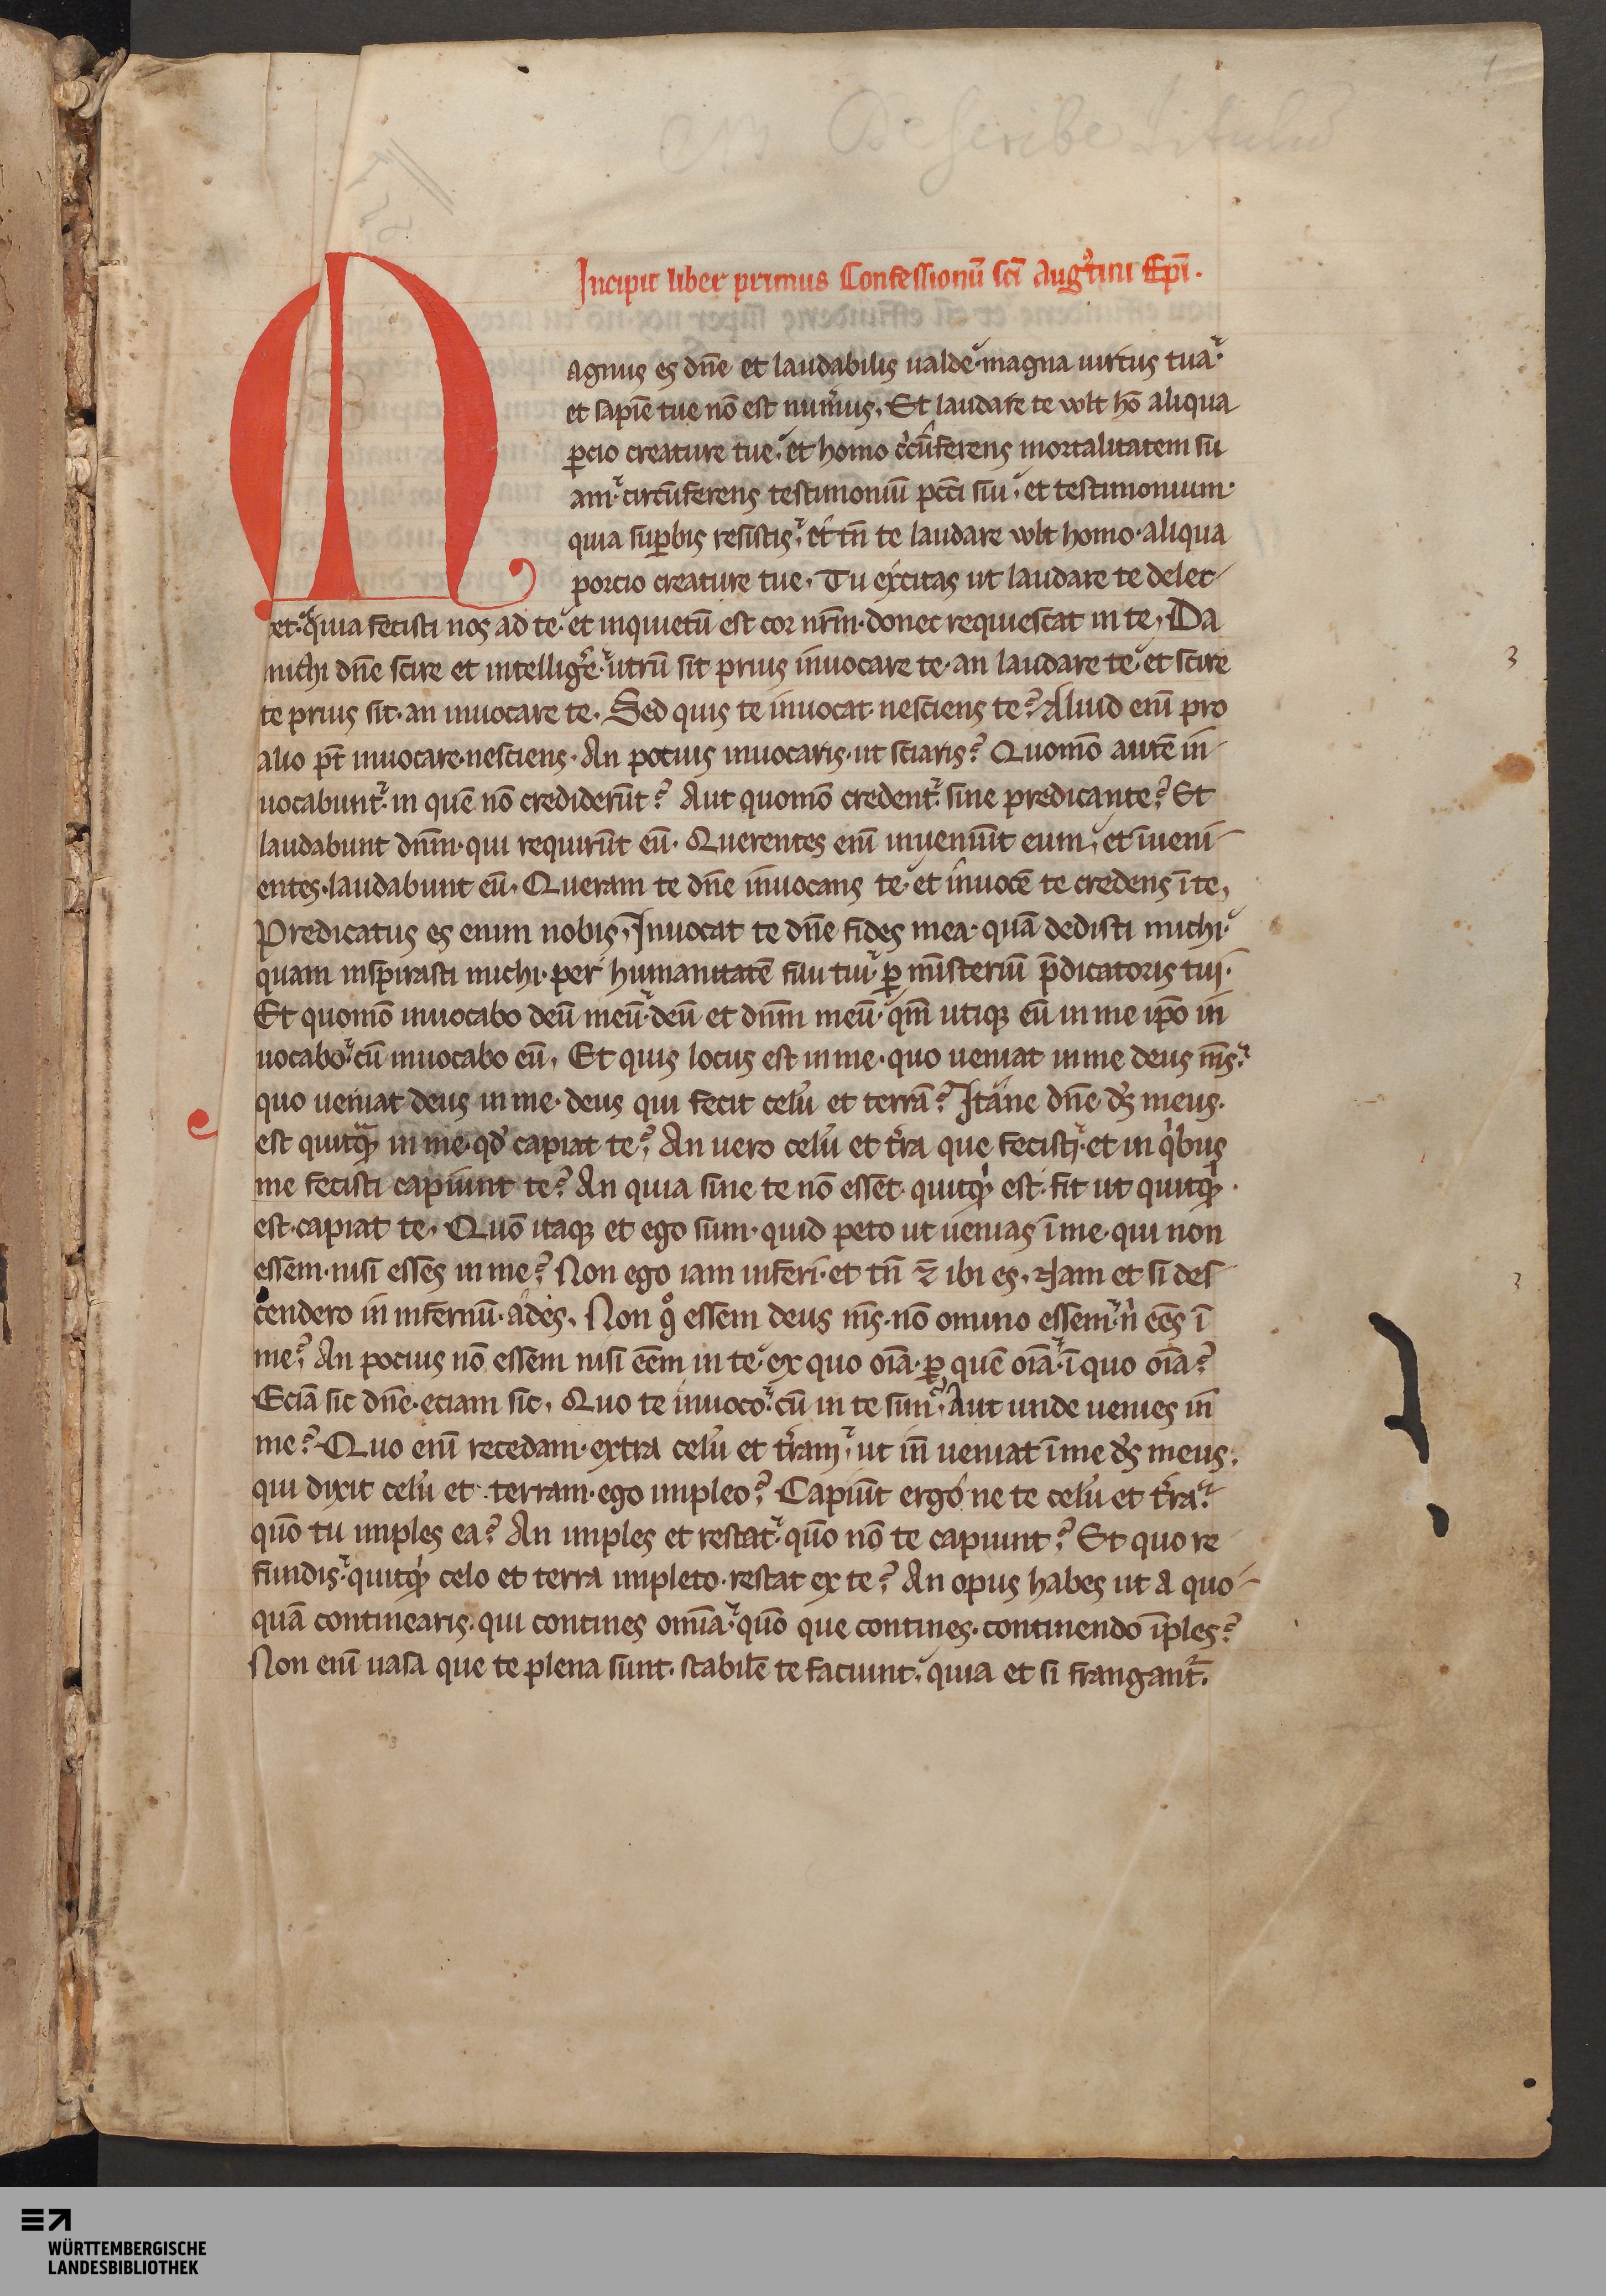 Describe titulu
1
Incipit liber primus Confessionū sc̄i Augꝰtini Ep̄i.
Magnus es dn̄e et laudabilis ualde·magna uirtus tua·
et sapīe tue nō est num̄us. Et laudare te wlt hō aliqua
ꝑcio creature tue. et homo c̍cūferens mortalitatem su
am· circūferens testimoniū pcc̄i sui. et testimonium·
quia suꝑbis resistis. et tn̄ te laudare wlt homo·aliqua
porcio creature tue. Tu excitas ut laudare te delec-
et·quia fecisti nos ad te·et inquietū est cor nr̄m·donec requiescat in te. Da
michi dn̄e scire et intellig̍e·utrū sit prius inuocare te·an laudare te·et scire
te prius sit·an inuocare te. Sed quis te inuocat nesciens te? Aliud enī pro
alio pt̄ inuocare·nesciens. An pocius inuocaris·ut sciaris? Quomō autē in-
uocabunt· in quē nō crediderūt? Aut quomō credent· sine predicante? Et
laudabunt dn̄m·qui requirūt eū. Querentes enī inueniūt eum. et īueni-
entes·laudabunt eū. Queram te dn̄e inuocans te·et inuocē te credens ī te.
Predicatus es enim nobis. Inuocat te dn̄e fides mea·quā dedisti michi·
quam inspirasti michi·per humanitatē filii tui·ꝑ mīsteriū p̄dicatoris tui.
Et quomō inuocabo deū meū·deū et dn̄m meū·qm̄ utiqꝫ eū in me ip̄o in
uocabo·cū inuocabo eū. Et quis locus est in me·quo ueniat in me deus m̄s·
quo ueniat deus in me·deus qui fecit celū et terrā? Itane dn̄e ds̄ meus·
e
est quitqͣꝫ in me·qd̍ capiat te? An uero celū et t̍ra que fecisti·et in q̍bus
me fecisti capiunt te? An quia sine te nō esset·quitqͥꝫ est·fit ut quitqͥꝫ·
est·capiat te. Quō itaqꝫ et ego sum·quid peto ut uenias ī me·qui non
essem·nisi esses in me? Non ego iam inferi·et tn̄ ⁊̄ ibi es. Nam et si des
cendero in infernū·ades. Non gͦ essem deus m̄s·nō omnino essem·nͥ ēēs ī
me? An pocius nō essem nisi ēēm in te·ex quo oīa·ꝑ quē oīa·ī quo oīa?
Eciā sic dn̄e·eciam sic. Quo te inuoco·cū in te sim? Aut unde uenies in
me? Quo enī recedam·extra celū et t̍ram. ut in̄ ueniat ī me ds̄ meus:
qui dixit celū et terram·ego impleo? Capiūt ergo ne te celū et t̍ra·
quō tu imples ea? An imples et restat·quō nō te capiunt? Et quo re
fundis·quitqͥꝫ celo et terra impleto·restat ex te? An opus habes ut a quo-
quā continearis·qui contines omīa·quō que contines·continendo īples?
Non enī uasa que te plena sunt·stabilē te faciunt. quia et si frangant·
WÜRTTEMBERGISCHE
LANDESBIBLIOTHEK